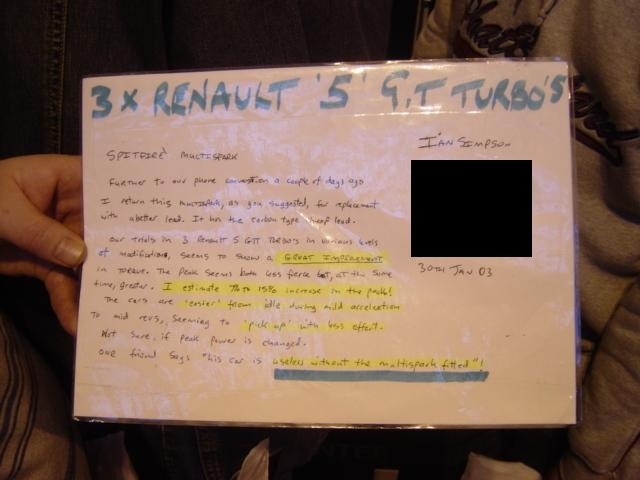 3 x RENAULT '5' G.T TURBO'S
IAN SIMPSON
SPITFIRE MULTISPARK
FURTHER TO OUR PHONE CONVERSTION A COUPLE OF DAYS AGO
I RETURN THIS MULTISPARK, AS YOU SUGGESTED, FOR REPLACEMENT
WITH A BETTER LEAD. IT HAS THE CARBON TYPE CHEAP LEAD.
OUR TRIALS IN 3 RENAULT 5 GTT TURBO'S IN VARIOUS LEVELS
OF MODIFICATION, SEEMS TO SHOW A GREAT IMPROVEMENT
IN TORQUE. THE PEAK SEEMS BOTH LESS FIERCE BUT, AT THE SAME
TIME, GREATER. I ESTIMATE 7% TO 15% INCREASE IN THE PEAK!
THE CARS ARE 'EASIER' FROM IDLE DURING MILD ACCELERATION
TO MID REVS, SEEMING TO 'PICK UP' WITH LESS EFFORT.
NOT SURE, IF PEAK POWER IS CHANGED.
OUR FRIEND SAYS "HIS CAR IS USELESS WITHOUT THE MULTISPARK FITTED"!
30TH JAN 03